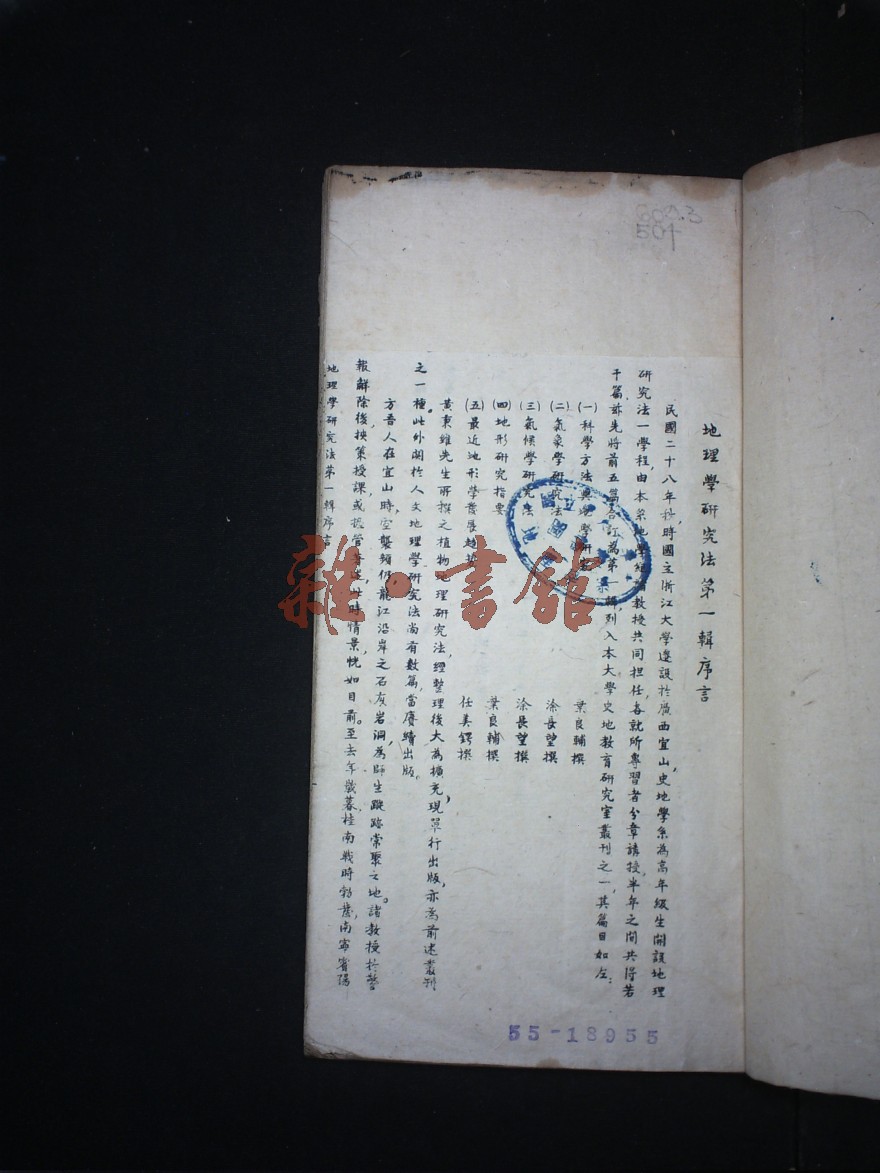 地理學研究法第一輯序言
民國二十八年秒,時國立浙江大學遷設於廣西宜山,史地學系為高年級生開設地理
研究法一學程,由本系地學組教授共同担任,各就所專習者分章講授,半年之間共得若
干篇,茲先將前五篇合訂為第一輯,列入本大學史地教育研究室叢刊之一,其篇目如左:
(一)科學方法與地學研究 葉良輔撰
(二)氣象學研究法 涂長望撰
(三)氣候學研究法 涂長望撰
(四)地形研究指要 葉良輔撰
(五)最近地形學發展趨勢 任美鍔撰
黃秉維先生所撰之植物地理研究法,經整理後大為擴充,現單行出版,亦為前述叢刊
之一種。此外關於人文地理學研究法尚有數篇,當賡續出版。
方吾人在宜山時,空襲頻仍,龍江沿岸之石灰岩洞為師生蹤跡常聚之地。諸教授於警
報解除後,挾策授課,或振管著述,此時情景,恍如目前。至去年歲暮,桂南戰時勃發,南寧賓陽
地理學研究法第一輯序言
雜·書館
55-18955